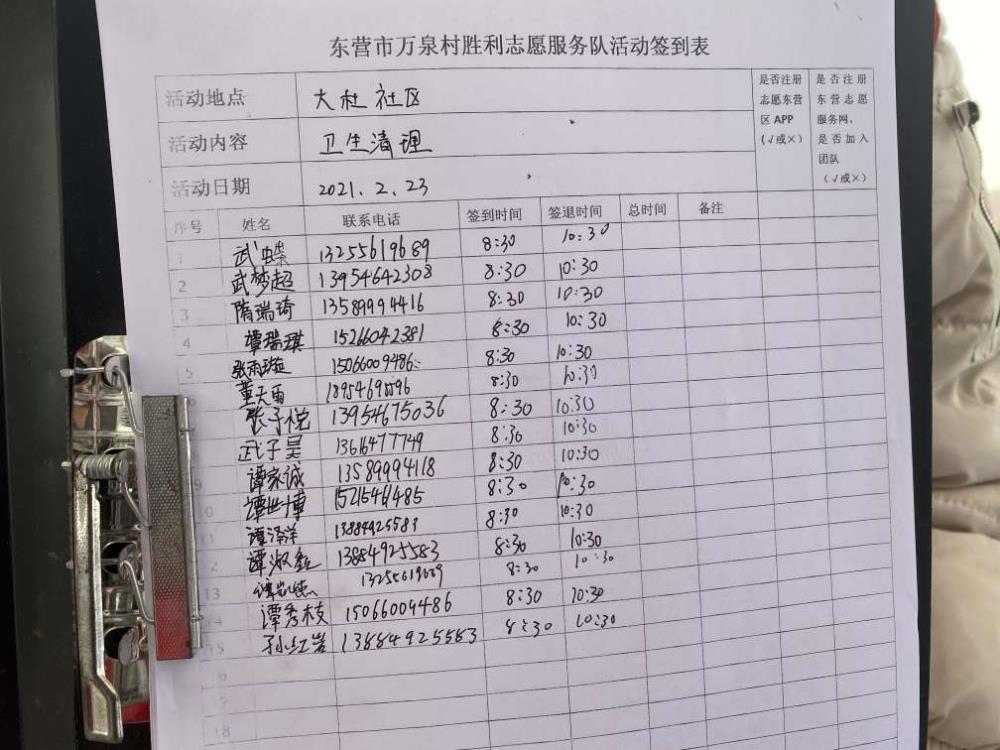 东营市万泉村胜利志愿服务队活动签到表
活动地点 大杜社区 是否注册志愿东营区APP(√或×) 是否注册东营志愿服务网,是否加入团队(√或×)
活动内容 卫生清理
活动日期 2021.2.23
序号 姓名 联系电话 签到时间 签退时间 总时间 备注
1 武 13255619689 8:30 10:30
2 武梦超 13954642308 8:30 10:30
3 隋瑞琦 13589994416 8:30 10:30
4 谭瑞琪 15266042381 8:30 10:30
5 张雨璇 15066009486 8:30 10:30
董天雨 8:30 10:30
张子悦 13954675036 8:30 10:30
武子昊 13616477749 8:30 10:30
9 谭家诚 13589994118 8:30 10:30
0 谭世博 8:30 10:30
1 谭泽洋 13884925583 8:30 10:30
2 谭淑红 13884925583 8:30 10:30
13 13255619689 8:30 10:30
14 谭秀枝 15066009486 8:30 10:30
15 孙红岩 13884925583 8:30 10:30
18